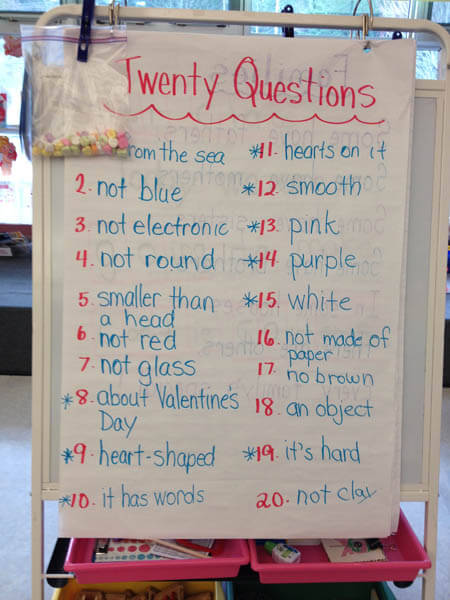 Twenty Questions
from the sea
2. not blue
3. not electronic
4. not round
5. smaller than
a head
6. not red
7. not glass
*8. about Valentine's
Day
*9. heart-shaped
*10. it has words
*11. hearts on it
*12. smooth
*13. pink
*14. purple
*15. white
16. not made of
paper
17. no brown
18. an object
*19. it's hard
20. not clay